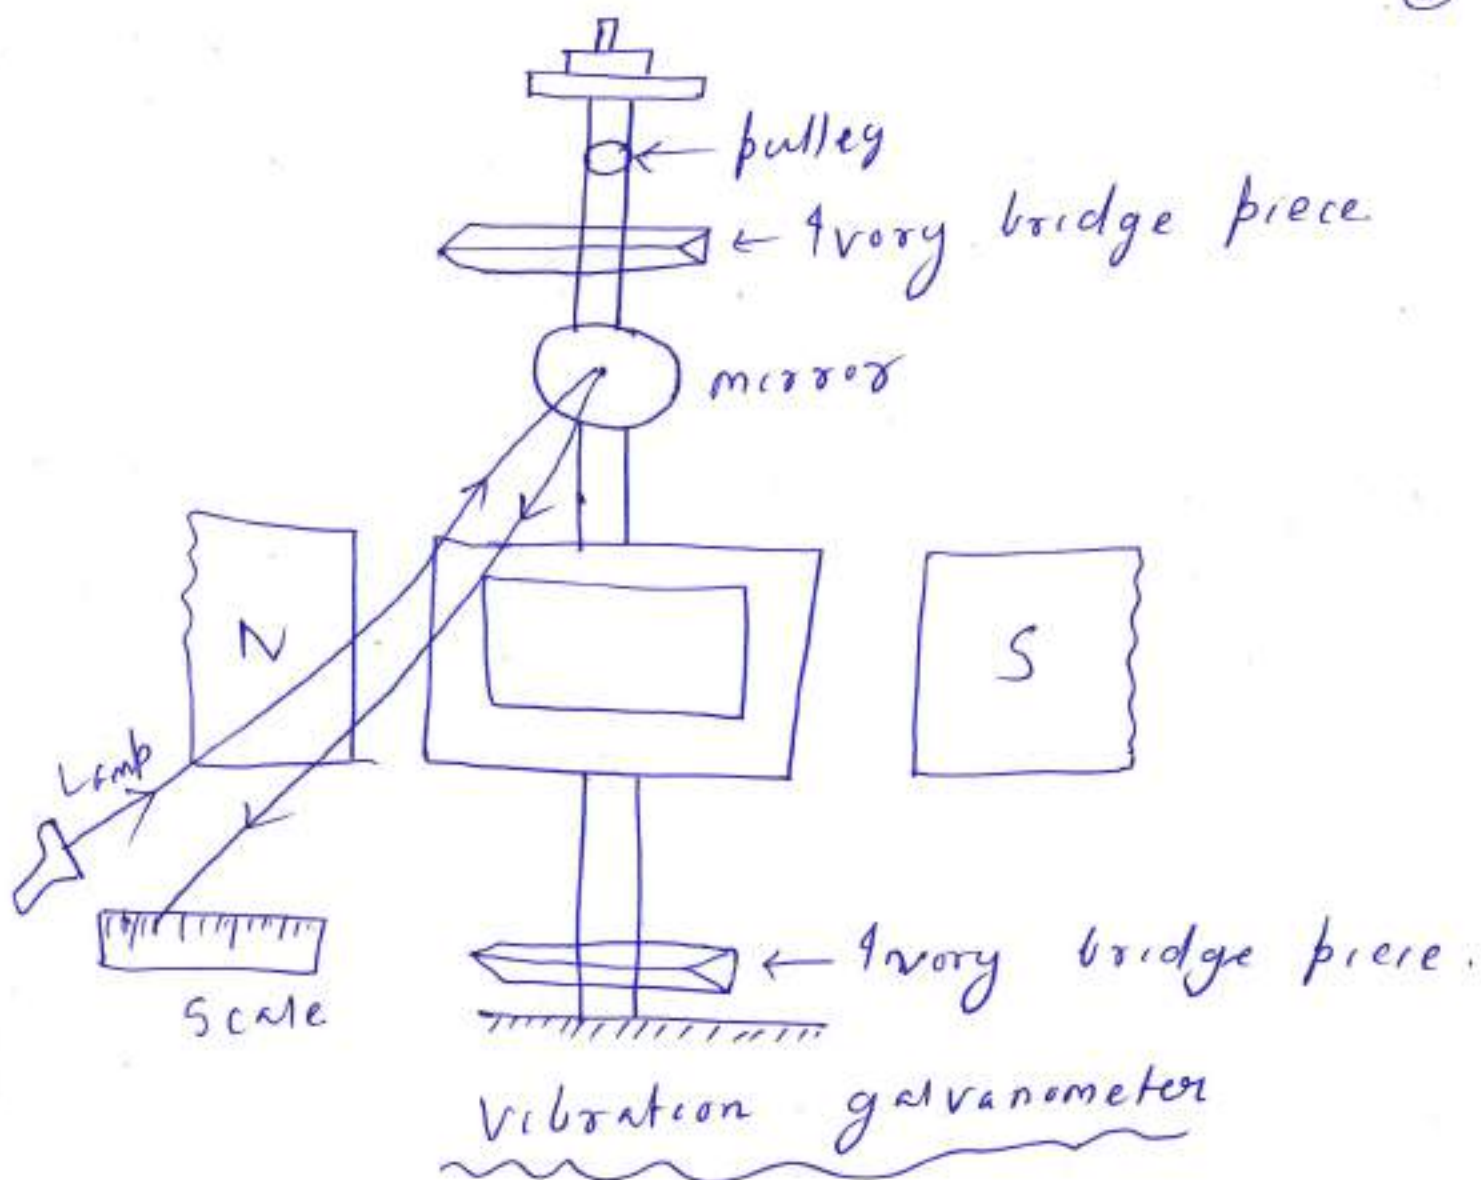 pulley
Ivory bridge piece
mirror
N
S
Lamp
Ivory bridge piece.
Scale
Vibration galvanometer